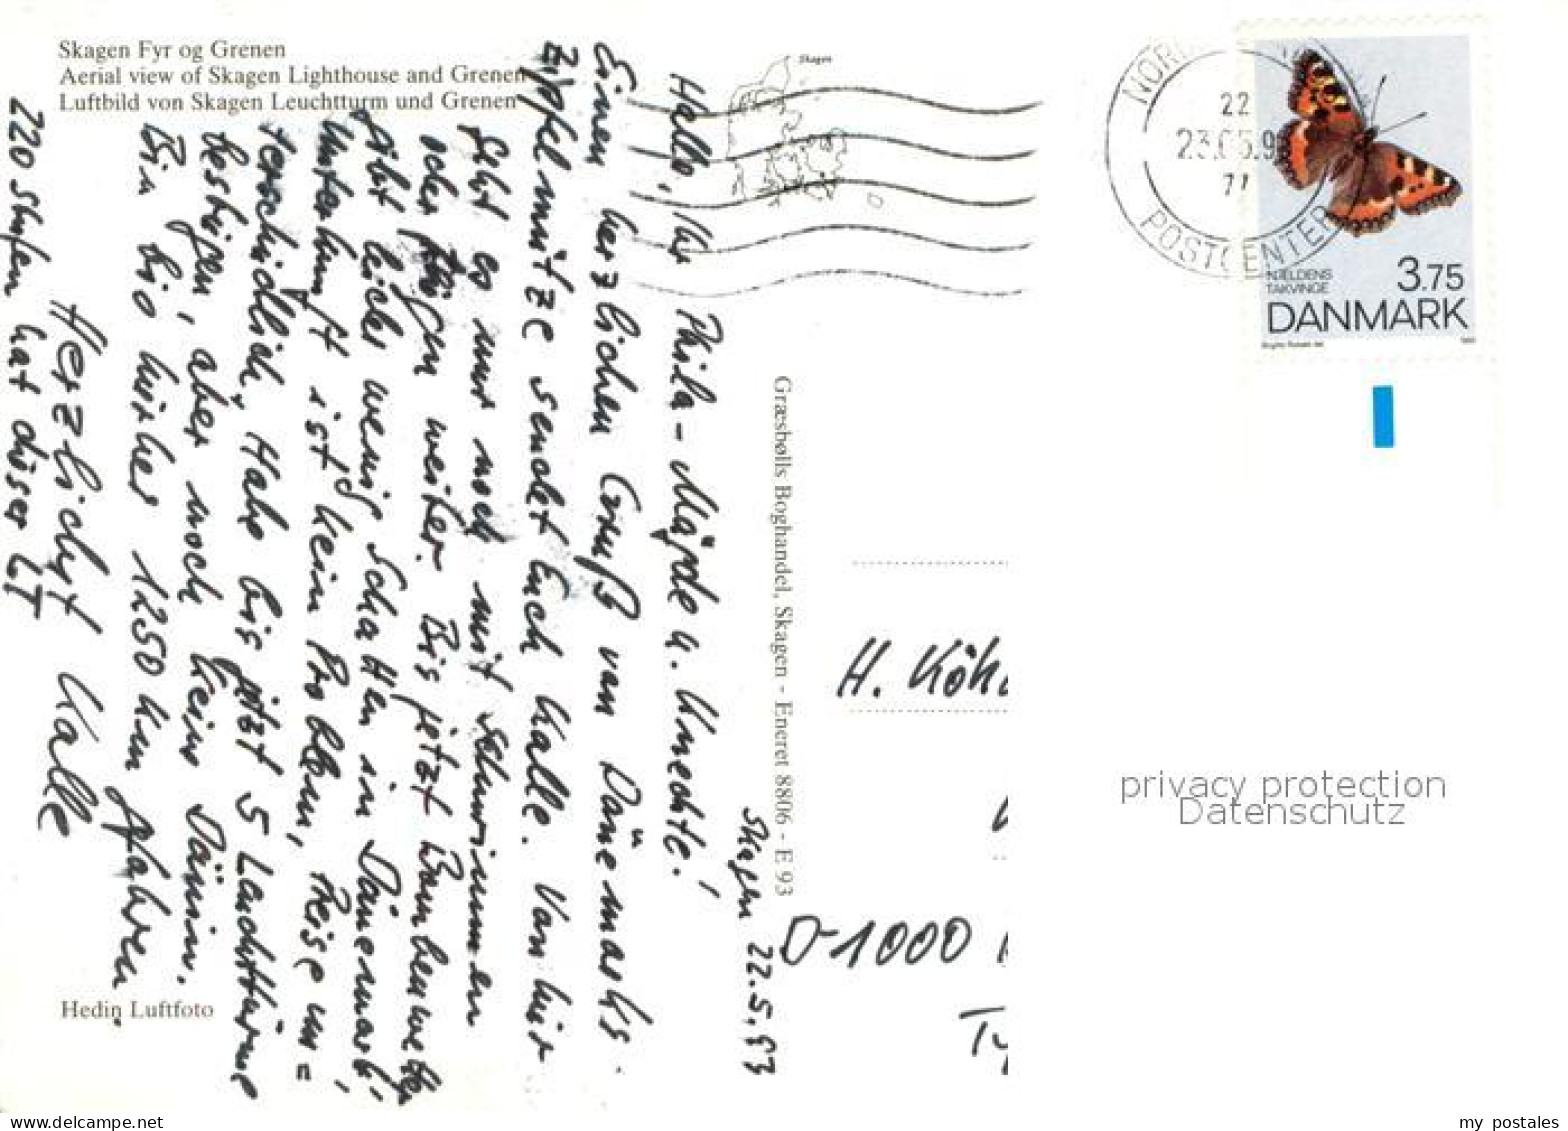 Skagen Fyr og Grenen
Aerial view of Skagen Lighthouse and Grenen
Luftbild von Skagen Leuchtturm und Grenen
Skagen
22
23.05.9
POSTCENTER
NÆLDENS
TAKVINGE
3.75
DANMARK
Skagen 22.5.93
Hallo, Ihr Phila-Mägde u. Knechte!
Einen herzlichen Gruß von Dänemarks
Zipfelmütze sendet Euch Kalle. Von hier
geht es nur noch mit Schwimmen
oder weiter. Bis jetzt Bombenwetter
Gibt leider wenig Schatten in Dänemark!
Unterkunft ist kein Problem, Preise un=
terschiedlich. Habe bis jetzt 5 Leuchttürme
bestiegen, aber noch keine Dänin.
Bin bis hierher 1250 km gefahren.
Herzlichst Kalle
220 Stufen hat dieser LT
Græsbølls Boghandel, Skagen - Eneret 8806 - E 93
H. Köh
D-1000
Hedin Luftfoto
privacy protection
Datenschutz
www.delcampe.net
my_postales